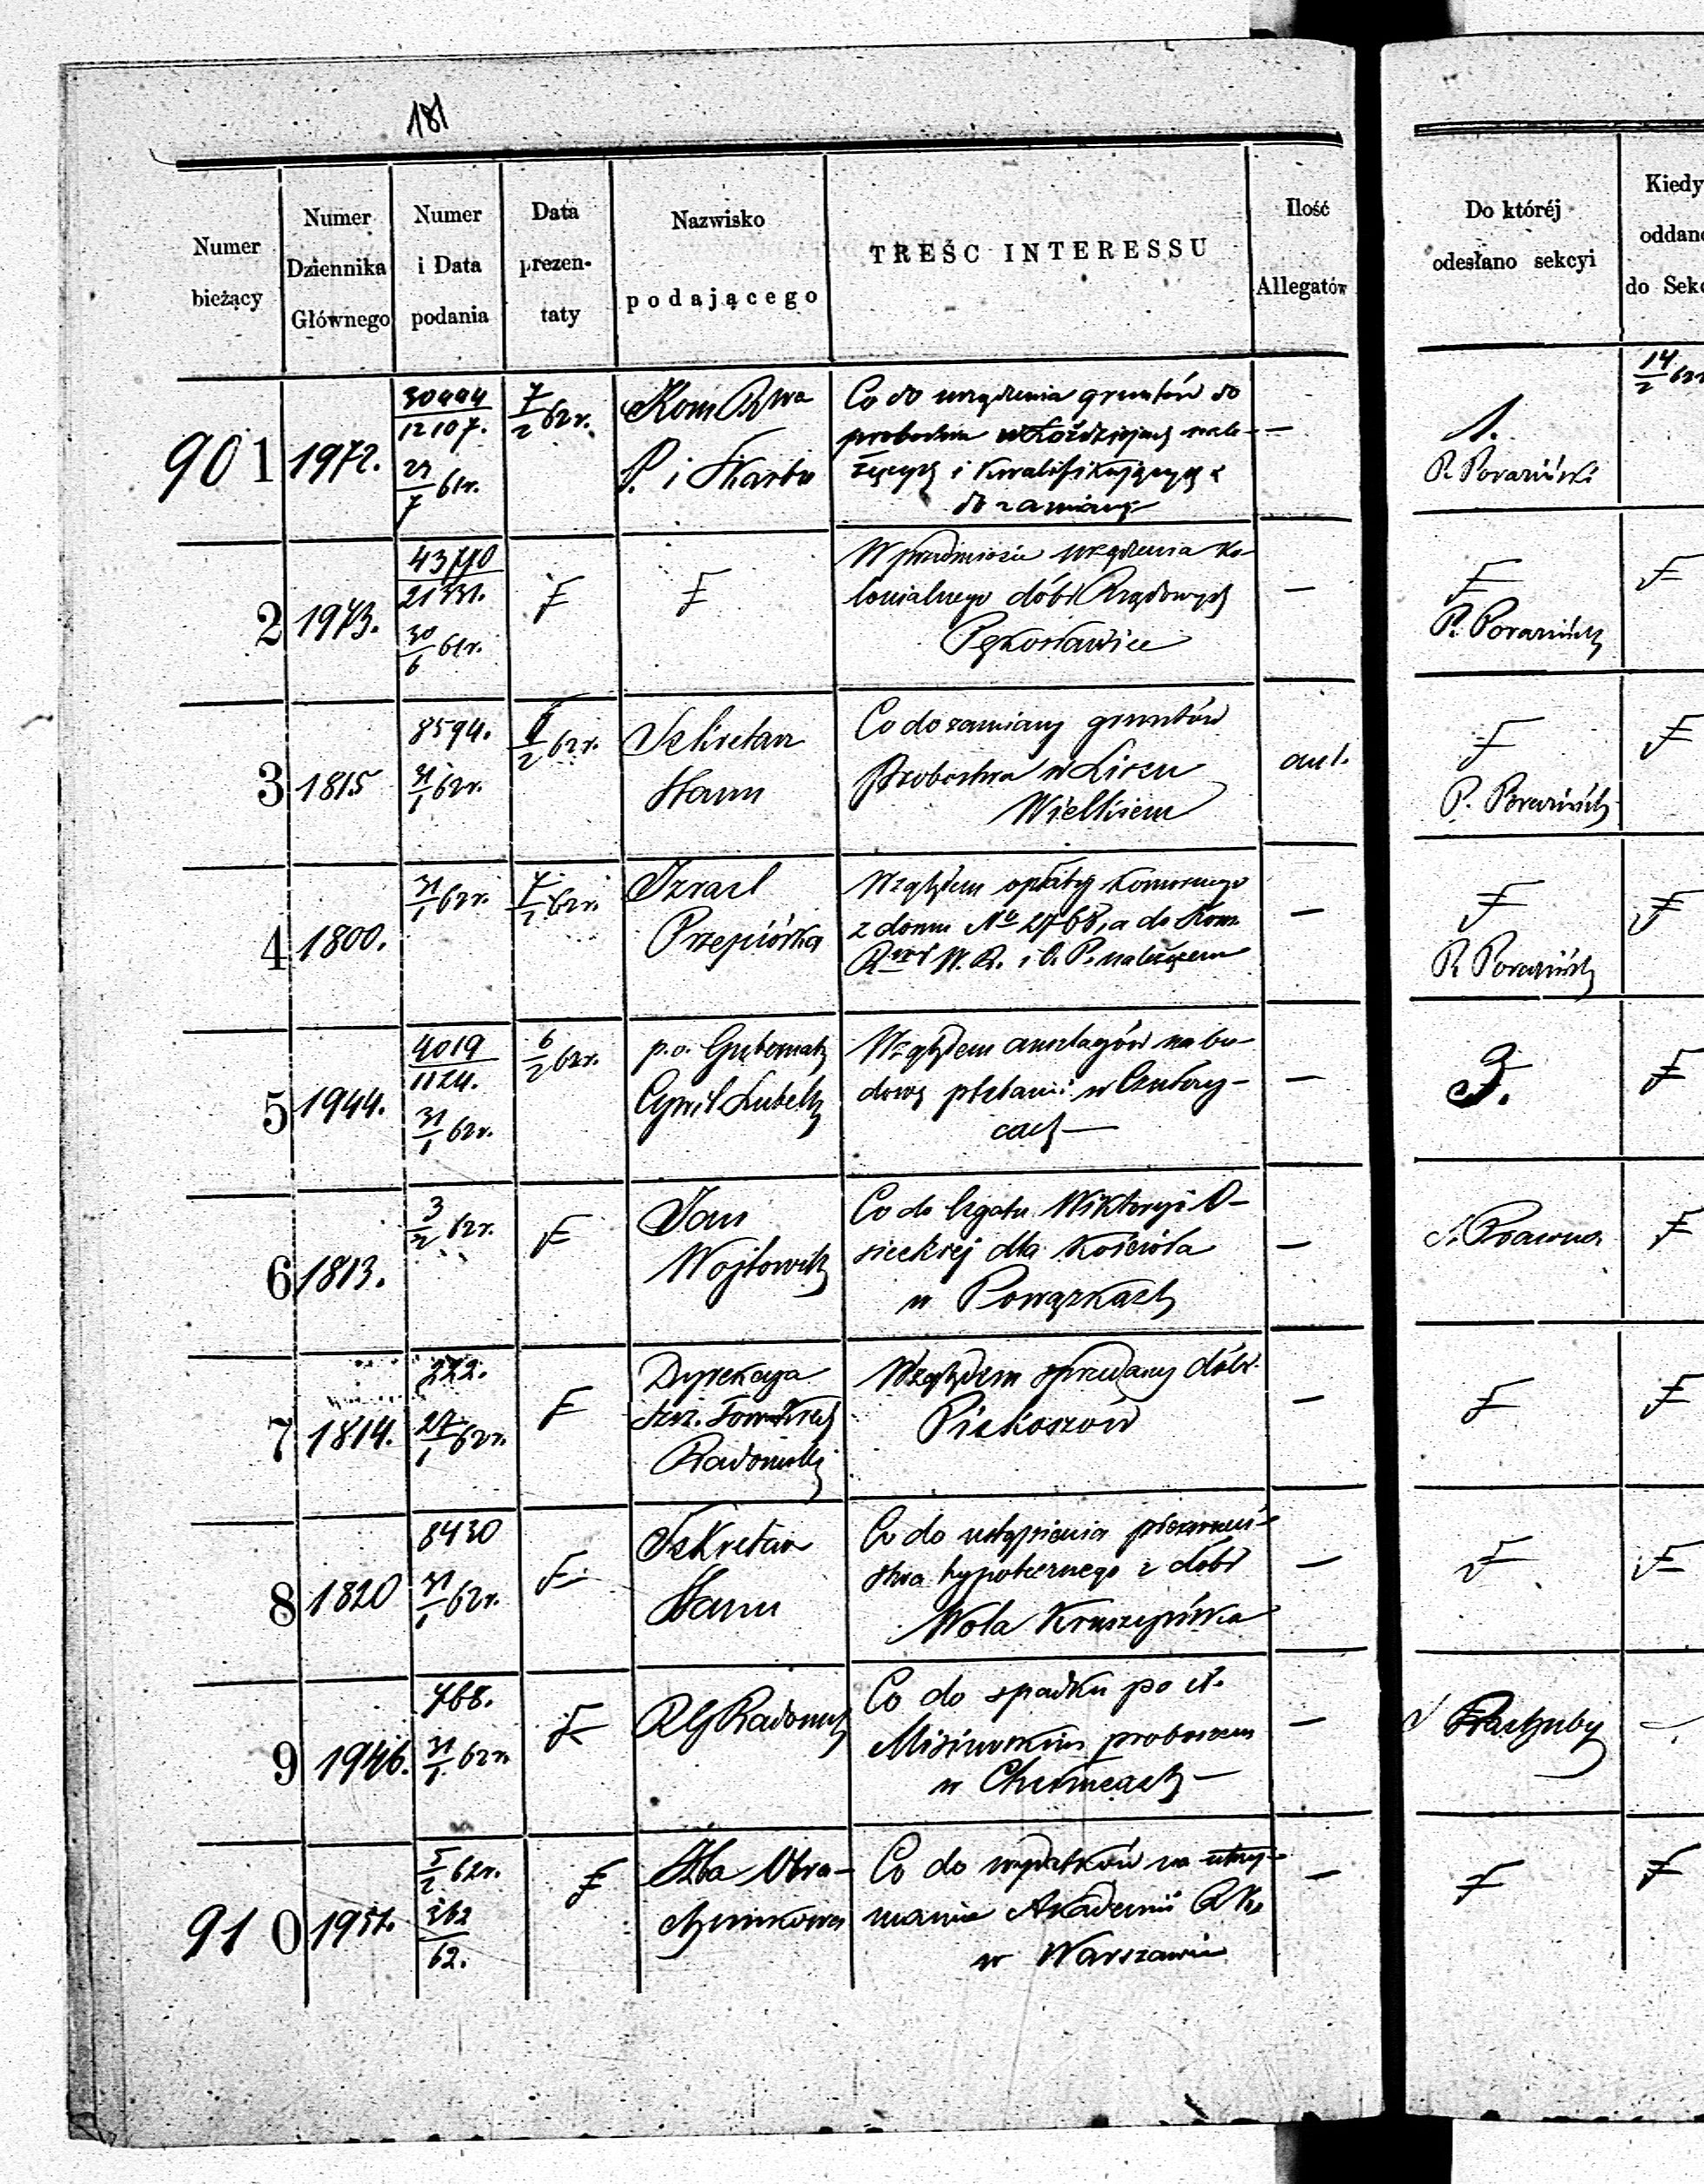 181
Numer bieżący
Numer Dziennika Głównego
Numer i Data podania
Data prezen- taty
Nazwisko podającego
TREŚĆ INTERESSU
Ilość Allegatów
Do któréj odesłano sekcyi
Kiedy oddano do Sekc
901 1972.
12107.
7/2 62 r.
Kom Rwa
P. i Skarbu
Co do urządzenia gruntów do
probostwa w Łoździejach nale-
żących i kwalifikujących
do zamiany
—
1.
P. Poraziński
14/2 62 r
2 1973.
21331.
30/6 61 r.
F
F
W przedmiocie urządzenia ko-
lonialnego dóbr Rządowych
Pękosławice
—
F
P. Poraziński
F
3 1815
8594.
31/1 62 r.
/2 62 r.
Sekretarz
Stanu
Co do zamiany gruntów
Probostwa w
Wielkiem
F
P. Poraziński
F
4 1800.
31/1 62 r.
7/2 62 r.
Izrael
Przepiórka
Względem opłaty komornego
z domu No 2768, a do Kom
W. R. i O. P. należącem
—
F
P. Poraziński
F
5 1944.
4019
1124.
31/1 62 r.
6/2 62 r.
p.o. Gubernat
Cywil Lubelsk
Względem anszlagów na bu-
dowę plebanii w
cach —
—
3.
F
6 1813.
3/2 62 r.
F
Jan
Wojtowicz
Co do legatu Wiktoryi O-
sieckiej dla kościoła
w Powązkach
—
S. Prawna
F
7 1814.
222.
27/1 62 r.
F
Dyrekcya
Szcz. Tow. Kred
Radomska
Względem sprzedaży dóbr
Piekoszów
—
F
F
8 1820
8430
31/1 62 r.
F
Sekretarz
Stanu
Co do ustąpienia pierwszeń-
stwa hypotecznego z dóbr
Wola
—
F
F
9 1946.
768.
31/1 62 r.
F
RG Radomsk
Co do spadku po X.
proboszczu
w
—
910
5/2 62 r.
62.
F
Izba Obra-
chunkowa
Co do wydatków na utrzy-
manie Akademii R K.
w Warszawie
—
F
F